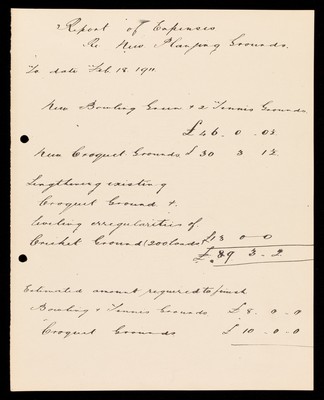 Report of Expenses
Re New Playing Grounds.
To date Feb. 18. 1911
New Bowling Green & 2 Tennis Grounds
£46. 0. 0½
New Croquet Grounds £30 3 1½
Lengthening existing
Croquet Ground &
leveling irregularities of
Cricket Ground (200 loads £13 0 0
£89 3-2
Estimated amount required to finish
Bowling & Tennis Grounds £8. 0-0
Croquet Grounds £10-0-0